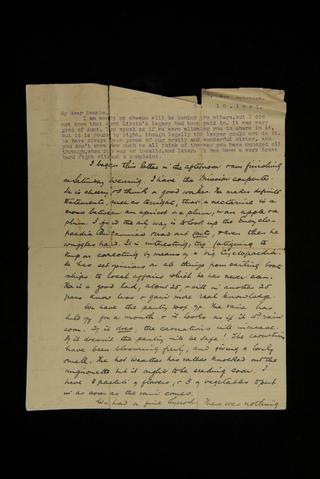 10.1927.
My dear people,
I am sorry my cheque will be behind the others, but I did
not know that Aunt Lizzie's legacy had been paid in. It was very
good of Aunt. You speak as if we were allowing you to share in it,
but it is yours by right, though legally the lawyer could not do it
We have always been proud of our pretty and wonderful sister, and
you don't know how much we all think of the way you have managed all
through, when Dad was an invalid, and later. It has been a very brave
hard fight without a complaint.
I began this letter in the afternoon & am finishing
on Saturday evening. I have the Mission carpenter
He is cheery, & I think a good worker. He makes definite
statements, such as tonight, that a nectarine is a
cross between an apricot & a plum, & an apple on
plum. I find the only way is to look up the Encyclo-
paedia and read out facts, & even then he
wriggles hard. It is interesting, tho' fatiguing to
keep on correcting by means of a big Cyclopaedia.
He has set opinions on all things from sailing
ships to local affairs which he has never seen.
He is a good lad, about 25, & will in another 25
years know less & gain more real knowledge.
We have the pantry roof on. The rain has
held off for a month & it looks as if it will rain
soon. If it does, the carnations will increase.
If it doesn't the pantry will be safe! The carnations
have been blooming freely, and giving a lovely
smell. The hot weather has rather knocked out the
mignonette but it ought to be seeding soon. I
have 8 packets of flowers, & 3 of vegetables to put
in as soon as the rain comes.
We had a fine Synod. There was nothing